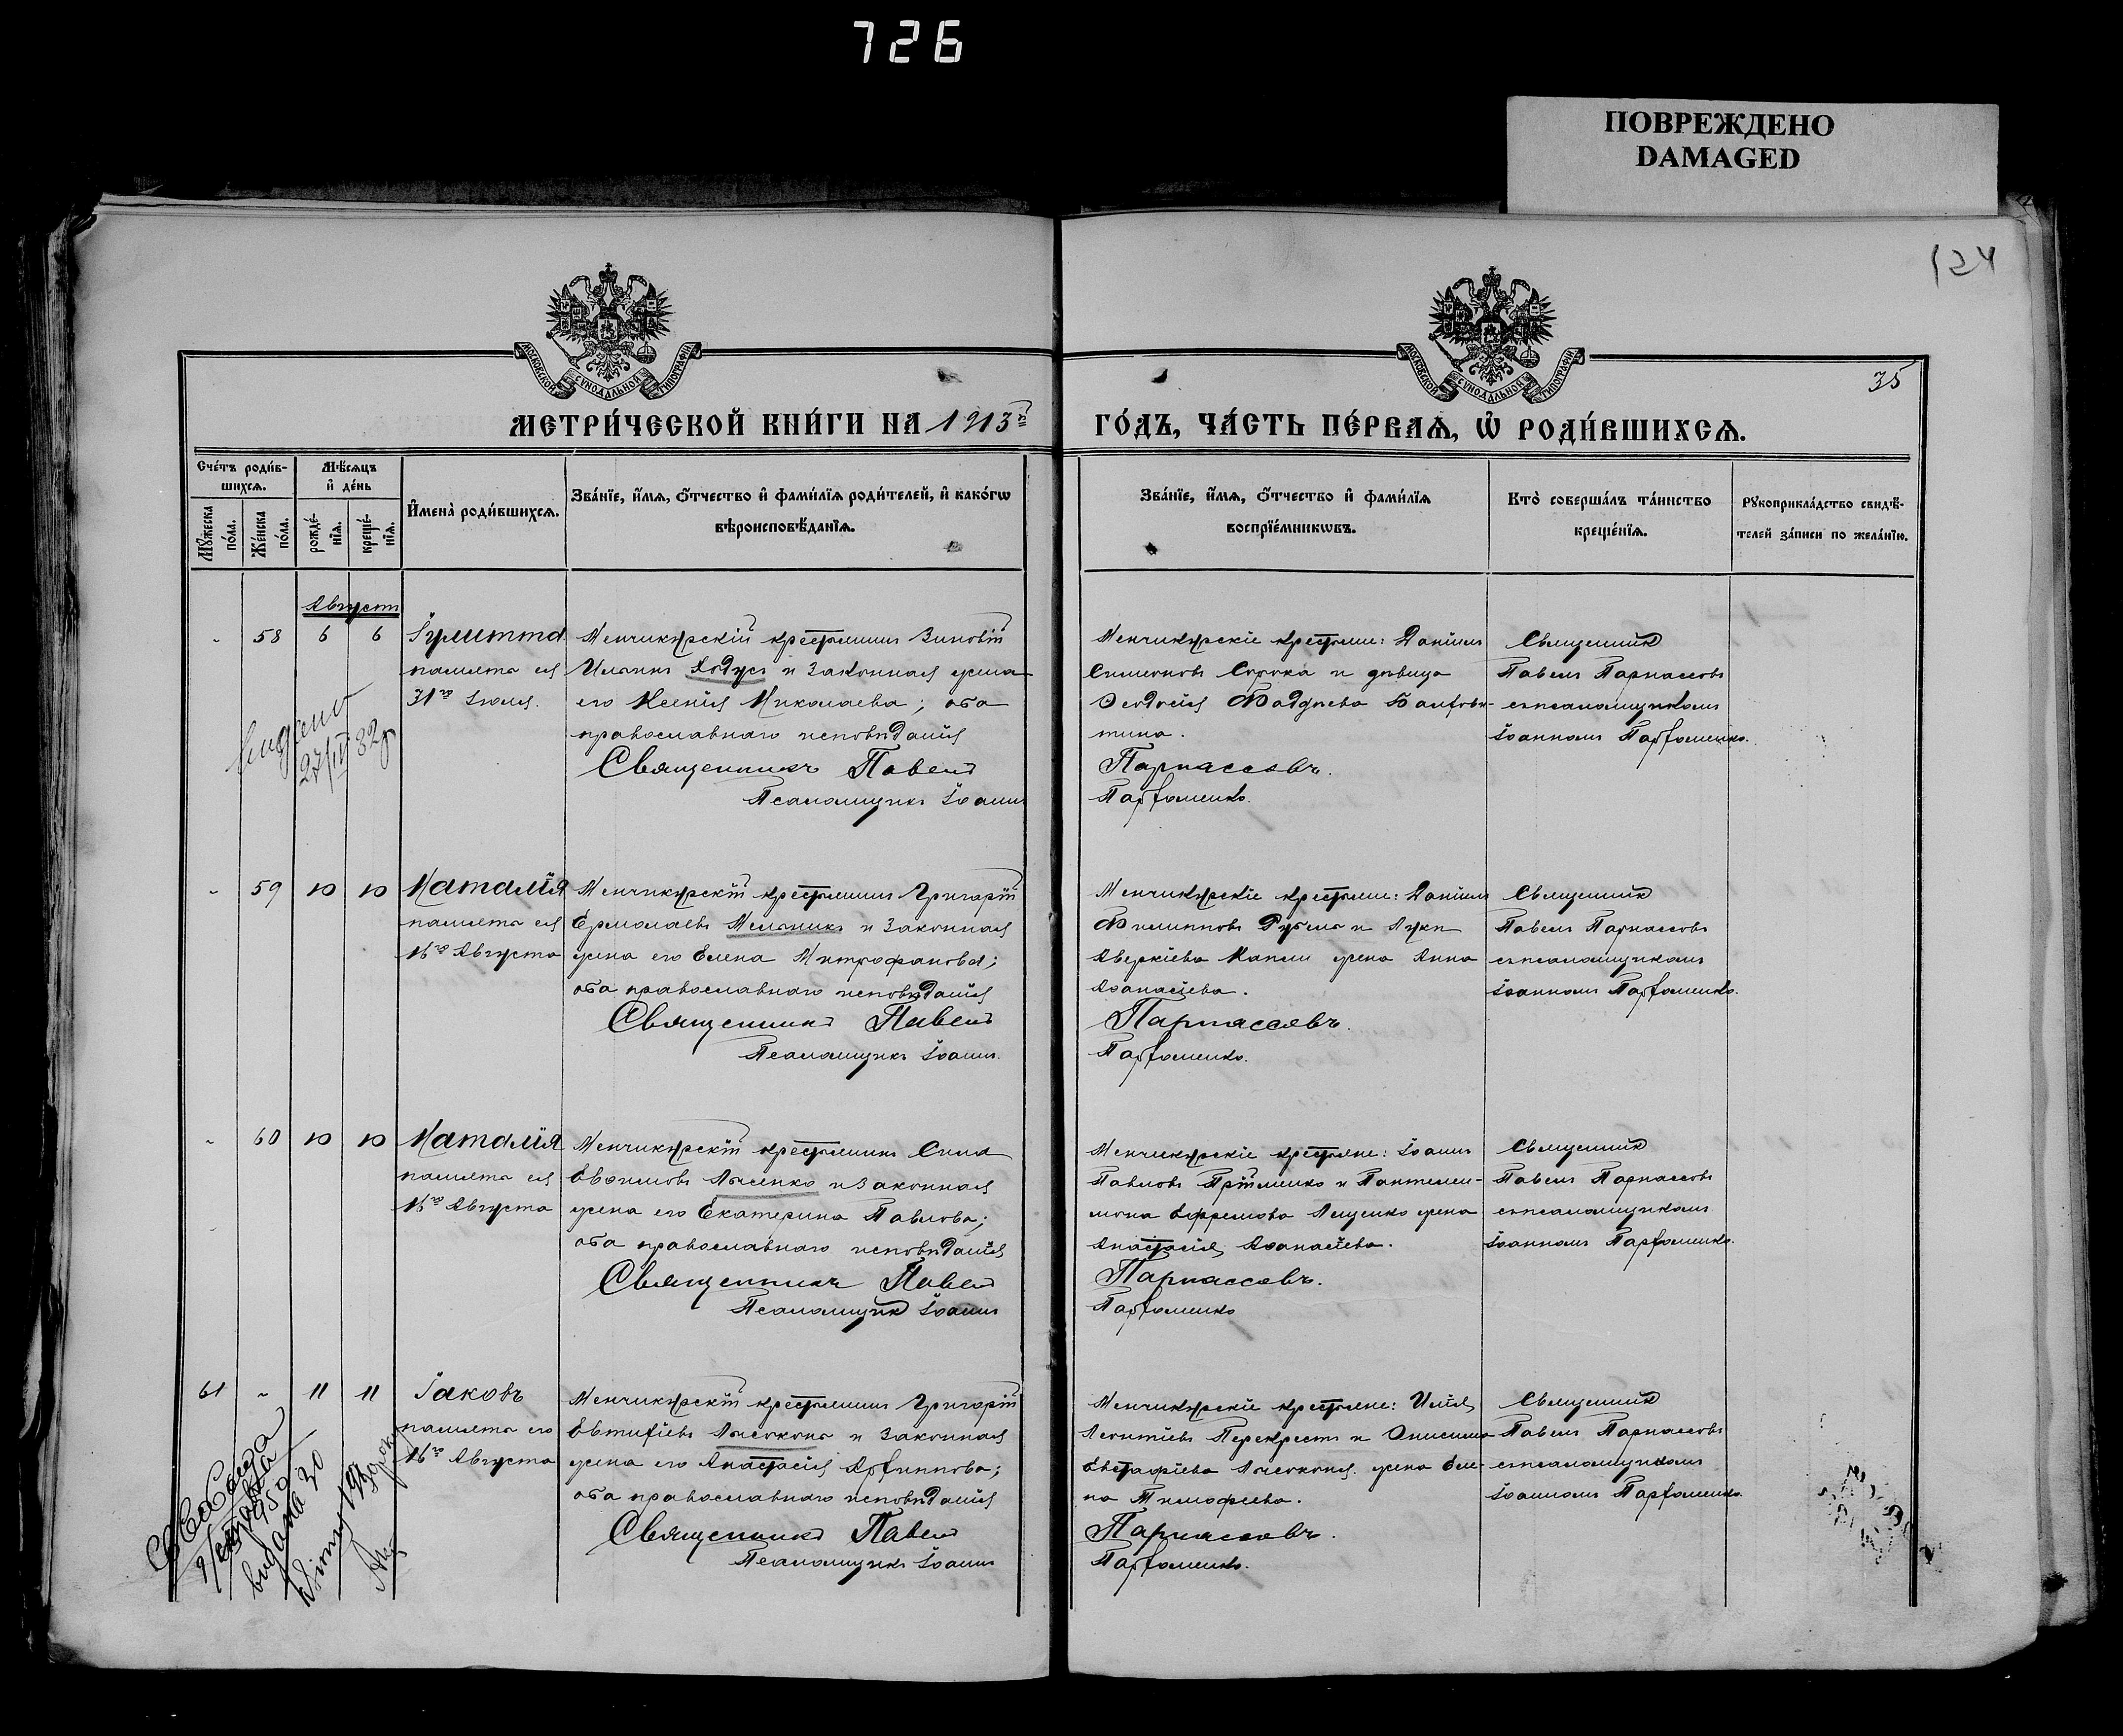 726
ПОВРЕЖДЕНО
DAMAGED
124
МОСКОВСКОЙ СѴНОДАЛЬНОЙ ТИПОГРАФІИ
МОСКОВСКОЙ СѴНОДАЛЬНОЙ ТИПОГРАФІИ
35
МЕТРИ́ЧЕСКОЙ КНИ́ГИ НА 1913й
ГО́ДЪ, ЧА́СТЬ ПЕ́РВАѦ, Ѡ҆ РОДИ́ВШИХСѦ.
Сче́тъ роди́в-
шихсѧ.
Мѣ́сѧцъ
и҆ де́нь
Мꙋ́жеска по́ла.
Же́нска по́ла.
рожде́-
нїѧ.
креще́-
нїѧ.
И҆мена̀ роди́вшихсѧ.
Зва́нїе, и҆́мѧ, ѻ҆́тчество и҆ фами́лїѧ роди́телей, и҆ како́гѡ
вѣроисповѣ́данїѧ.
Зва́нїе, и҆́мѧ, ѻ҆́тчество и҆ фами́лїѧ
воспрїе́мникѡвъ.
Кто̀ соверша́лъ та́инство
креще́нїѧ.
Рꙋкоприкла́дство свидѣ́-
телей за́писи по жела́нїю.
Августъ
58 6 6
Іулитта
память ея
31го Іюля.
Менчикурскій крестьянинъ Зиновій
Ильинъ и законная жена
его Ксенія Николаева; оба
православнаго исповѣданія
Священникъ Павелъ
Псаломщикъ Іоаннъ
Менчикурскіе крестьяне: Даніилъ
Симеоновъ Сорока и дѣвица
Ѳеодосія Фаддѣева
тина.
Парнассовъ.
Парфоменко.
Священникъ
Павелъ Парнассовъ
съ псаломщикомъ
Іоанномъ Парфоменко.
27/IV 32
59 10 10
Наталія
память ея
26го Августа
Менчикурскій крестьянинъ Григорій
Ермолаевъ Мельникъ и законная
жена его Елена Митрофанова;
оба православнаго исповѣданія
Священникъ Павелъ
Псаломщикъ Іоаннъ
Менчикурскіе крестьяне: Даніилъ
Филипповъ и Луки
Аверкіева жена Анна
Аѳанасіева.
Парнассовъ.
Парфоменко.
Священникъ
Павелъ Парнассовъ
съ псаломщикомъ
Іоанномъ Парфоменко.
60 10 10
Наталія
память ея
26го Августа
Менчикурскій крестьянинъ Сила
Евѳимовъ Лысенко и законная
жена его Екатерина Павлова;
оба православнаго исповѣданія
Священникъ Павелъ
Псаломщикъ Іоаннъ
Менчикурскіе крестьяне: Іоаннъ
Павловъ и Пантелеи-
мона Ефремова Лященко жена
Анастасія Аѳанасіева.
Парнассовъ.
Парфоменко
Священникъ
Павелъ Парнассовъ
съ псаломщикомъ
Іоанномъ Парфоменко.
61 11 11
Іаковъ
память его
26го Августа
Менчикурскій крестьянинъ Григорій
Евтихіевъ Лысоконь и законная
жена его Анастасія Архиппова;
оба православнаго исповѣданія
Священникъ Павелъ
Псаломщикъ Іоаннъ
Менчикурскіе крестьяне: Илія
Леонтіевъ Перекрестъ и Онисима
Евстафіева Лысоконя жена Еле-
на Тимофеева.
Парнассовъ.
Парфоменко.
Священникъ
Павелъ Парнассовъ
съ псаломщикомъ
Іоанномъ Парфоменко.